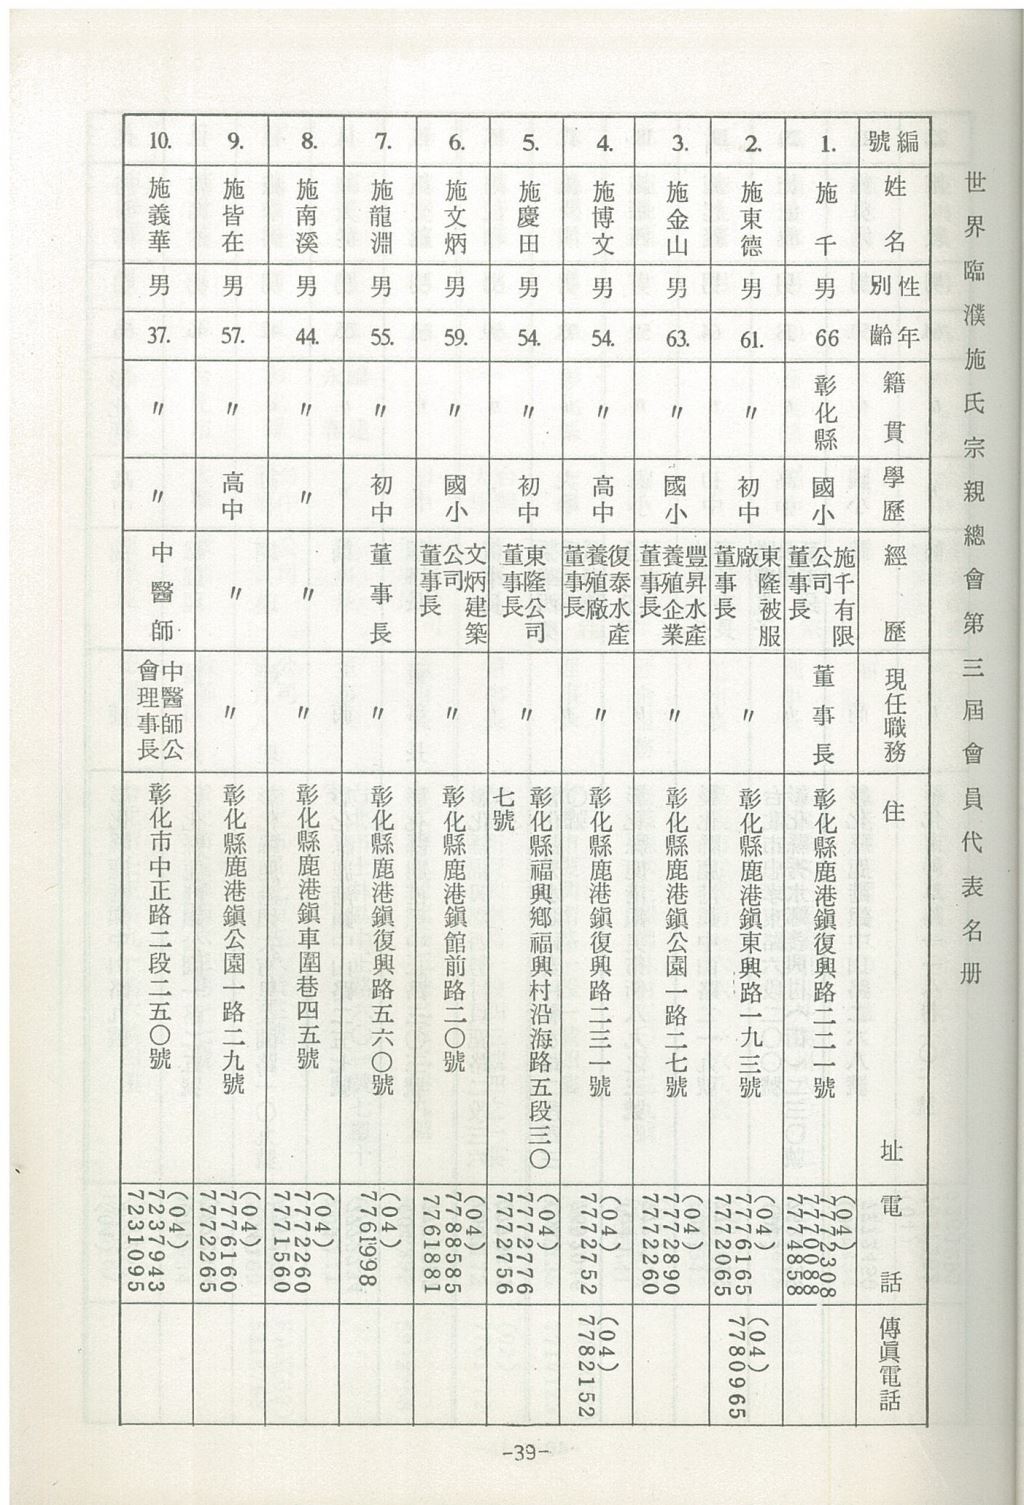 世界臨濮施氏宗親總會第三屆會員代表名册
編號 姓名 性別 年齡 籍貫 學歷 經歷 現任職務 住址 電話 傳眞電話
1. 施千 男 66 彰化縣 國小 施千有限公司董事長 董事長 彰化縣鹿港鎭復興路二二一號 (04) 7772308 7770088 7774858
2. 施東德 男 61. 〃 初中 東隆被服廠董事長 〃 彰化縣鹿港鎭東興路一九三號 (04) 7776165 7772065 (04) 7780965
3. 施金山 男 63. 〃 國小 豐昇水產養殖企業董事長 〃 彰化縣鹿港鎭公園一路二七號 (04) 7772890 7772260
4. 施博文 男 54. 〃 高中 復泰水產養殖廠董事長 〃 彰化縣鹿港鎭復興路二三一號 (04) 7772752 (04) 7782152
5. 施慶田 男 54. 〃 初中 東隆公司董事長 〃 彰化縣福興鄉福興村沿海路五段三〇七號 (04) 7772776 7772756
6. 施文炳 男 59. 〃 國小 文炳建築公司董事長 〃 彰化縣鹿港鎭館前路二〇號 (04) 7788585 7761881
7. 施龍淵 男 55. 〃 初中 董事長 〃 彰化縣鹿港鎭復興路五六〇號 (04) 7761998
8. 施南溪 男 44. 〃 〃 〃 〃 彰化縣鹿港鎭車圍巷四五號 (04) 7772260 7771560
9. 施皆在 男 57. 〃 高中 〃 〃 彰化縣鹿港鎭公園一路二九號 (04) 7776160 7772265
10. 施義華 男 37. 〃 〃 中醫師 中醫師公會理事長 彰化市中正路二段二五〇號 (04) 7237943 7231095
-39-